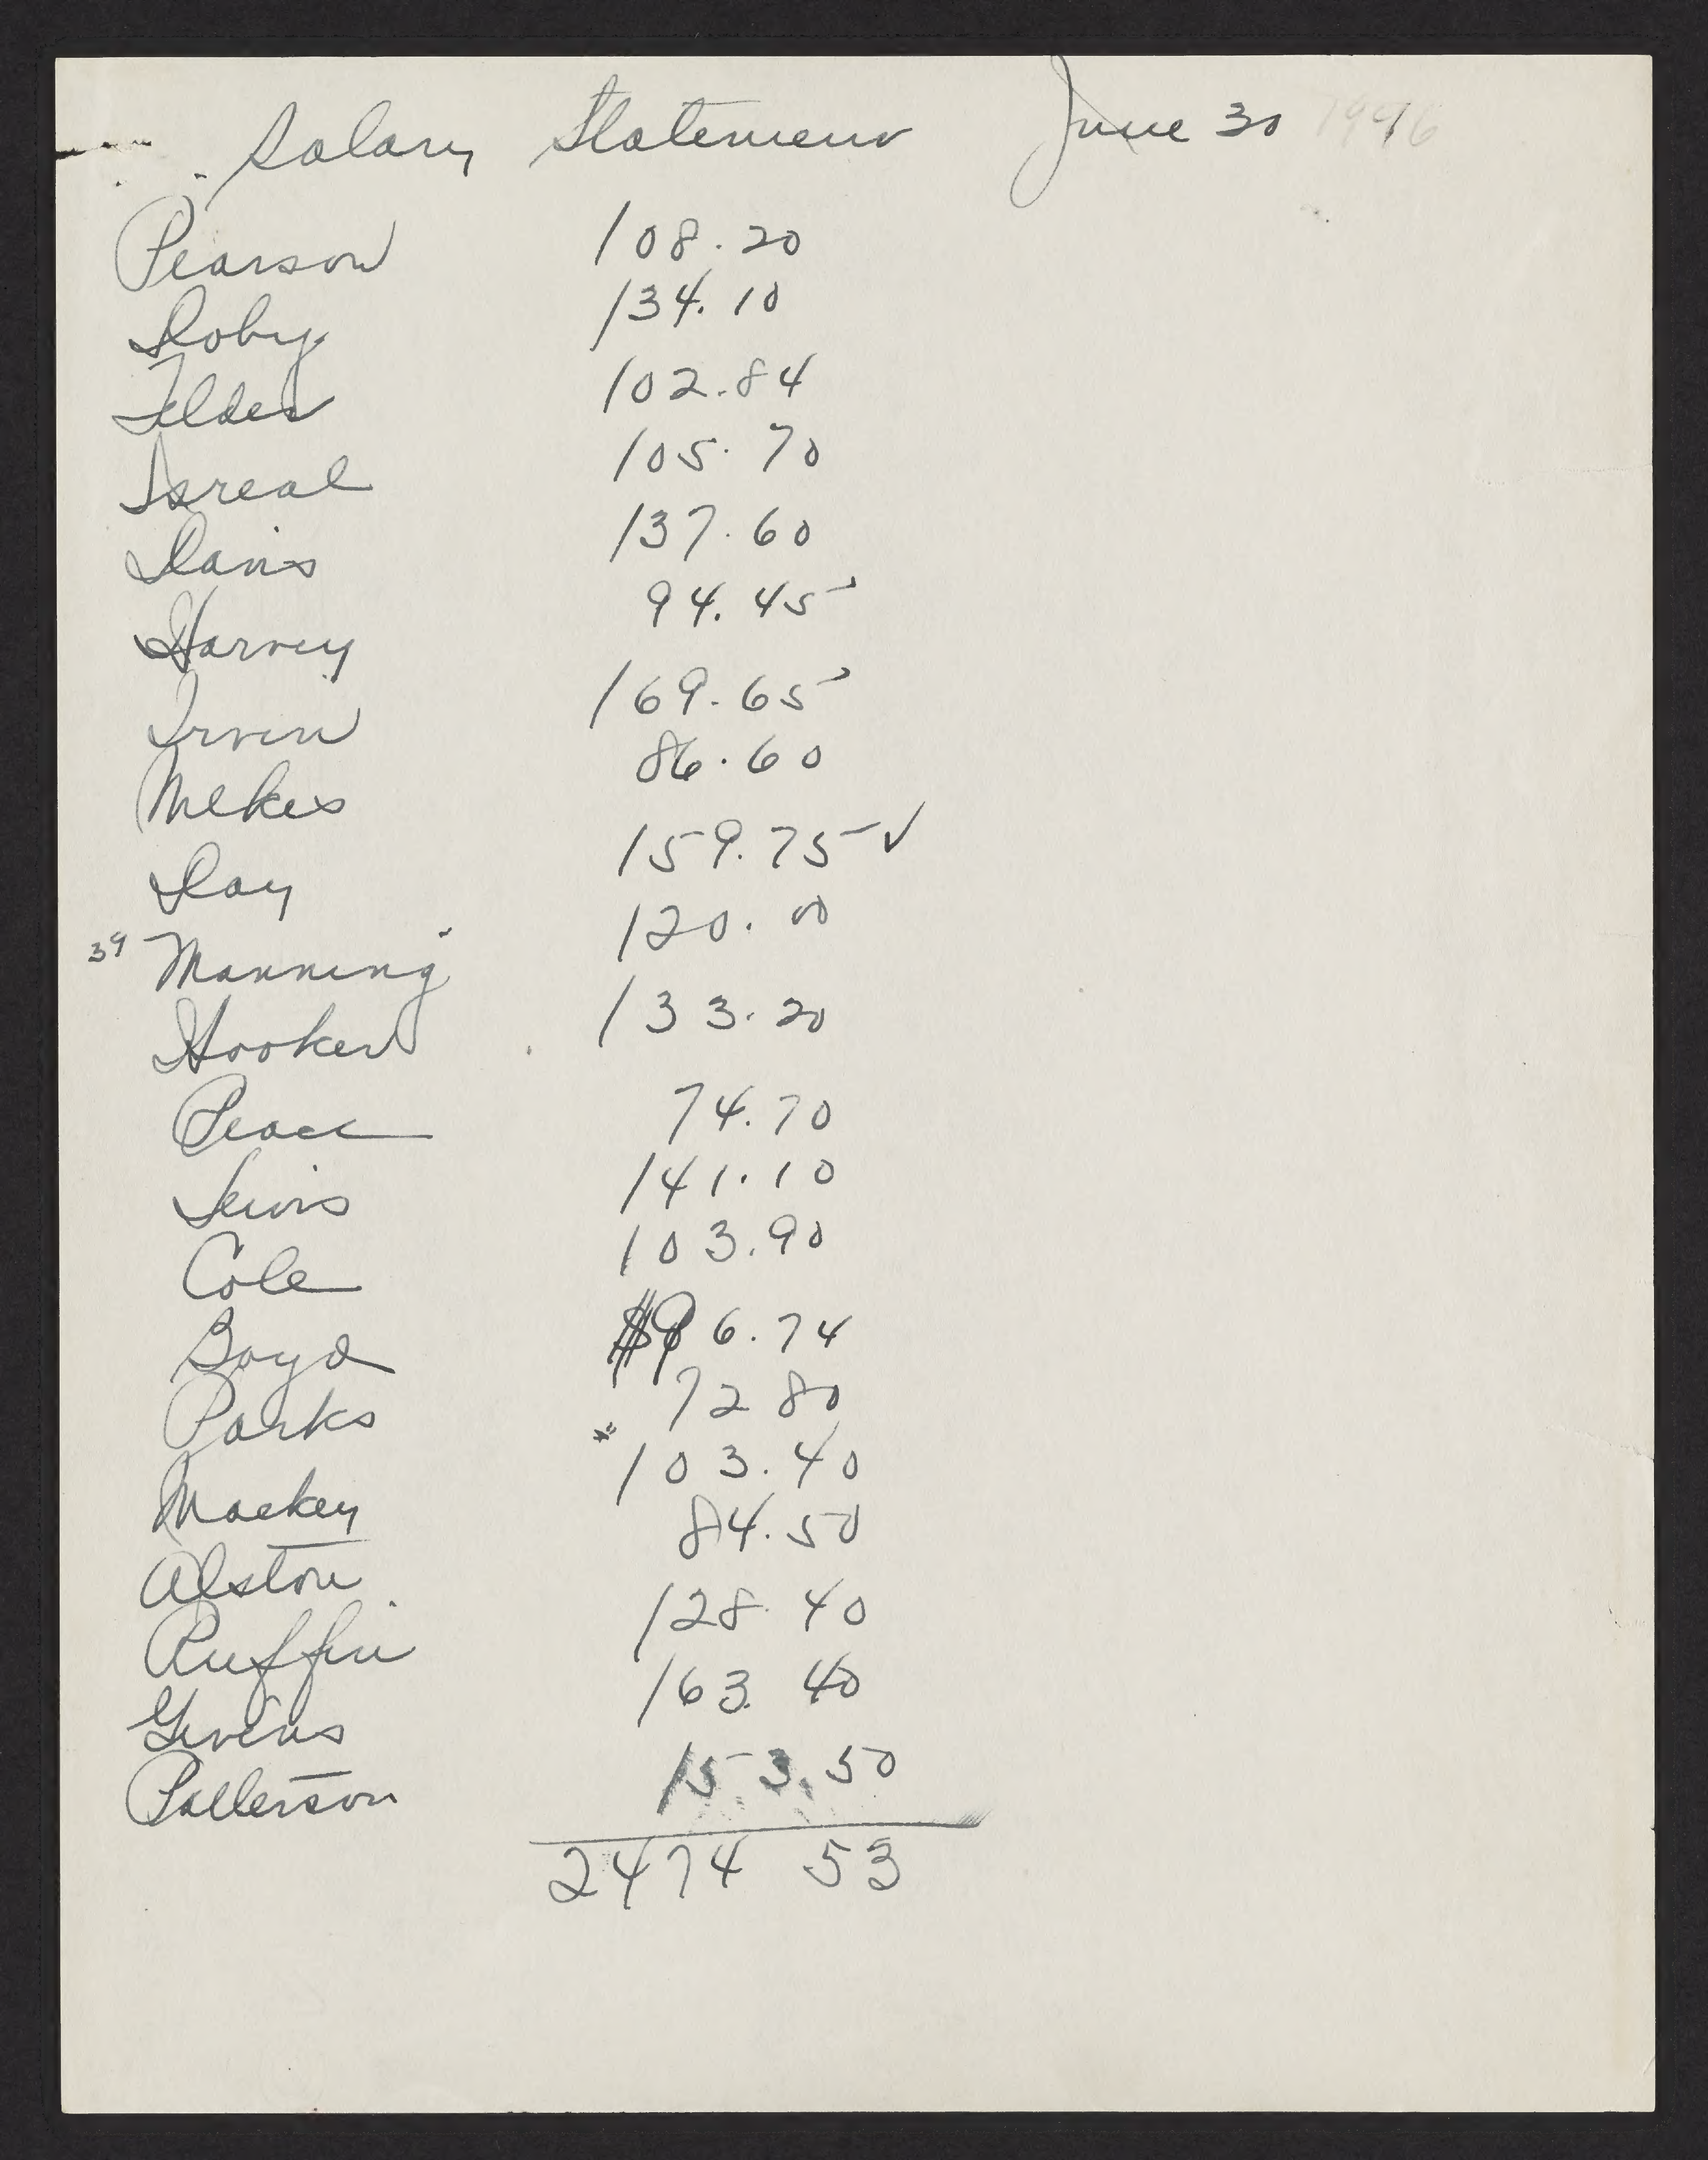 Salary Statement June 30 1946
Pearson 108.20
Doby 134.10
Felder 102.84
Isreal 105.70
Davis 137.60
Harvey 94.45
Irvin 169.65
Wilkes 86.60
Day 159.75 ✓
39 Manning 120.00
Hooker 133.20
Peace 74.70
Lewis 141.10
Cole 103.90
Boyd 96.74
Parks 72 80
Mackey * 103.40
Alston 84.50
Ruffin 128.40
Givens 163.40
Patterson 153.50
2474 53